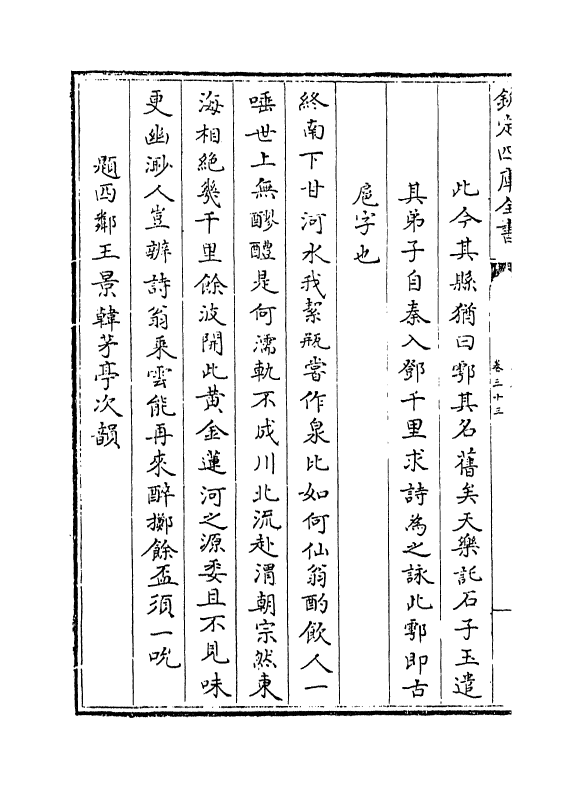 欽定四庫全書
卷三十三
此今其縣猶曰鄠其名舊矣天樂託石子玉遣
其弟子自秦入鄧千里求詩為之詠此鄠即古
扈字也
終南下甘河水我絜瓶嘗作泉比如何仙翁酌飲人一
唾世上無醪醴是何濡軌不成川北流赴渭朝宗然東
海相絶幾千里餘波開此黄金蓮河之源委且不見味
更幽渺人豈辨詩翁乘雲能再來醉擲餘盃須一吮
題西鄰王景韓茅亭次韻